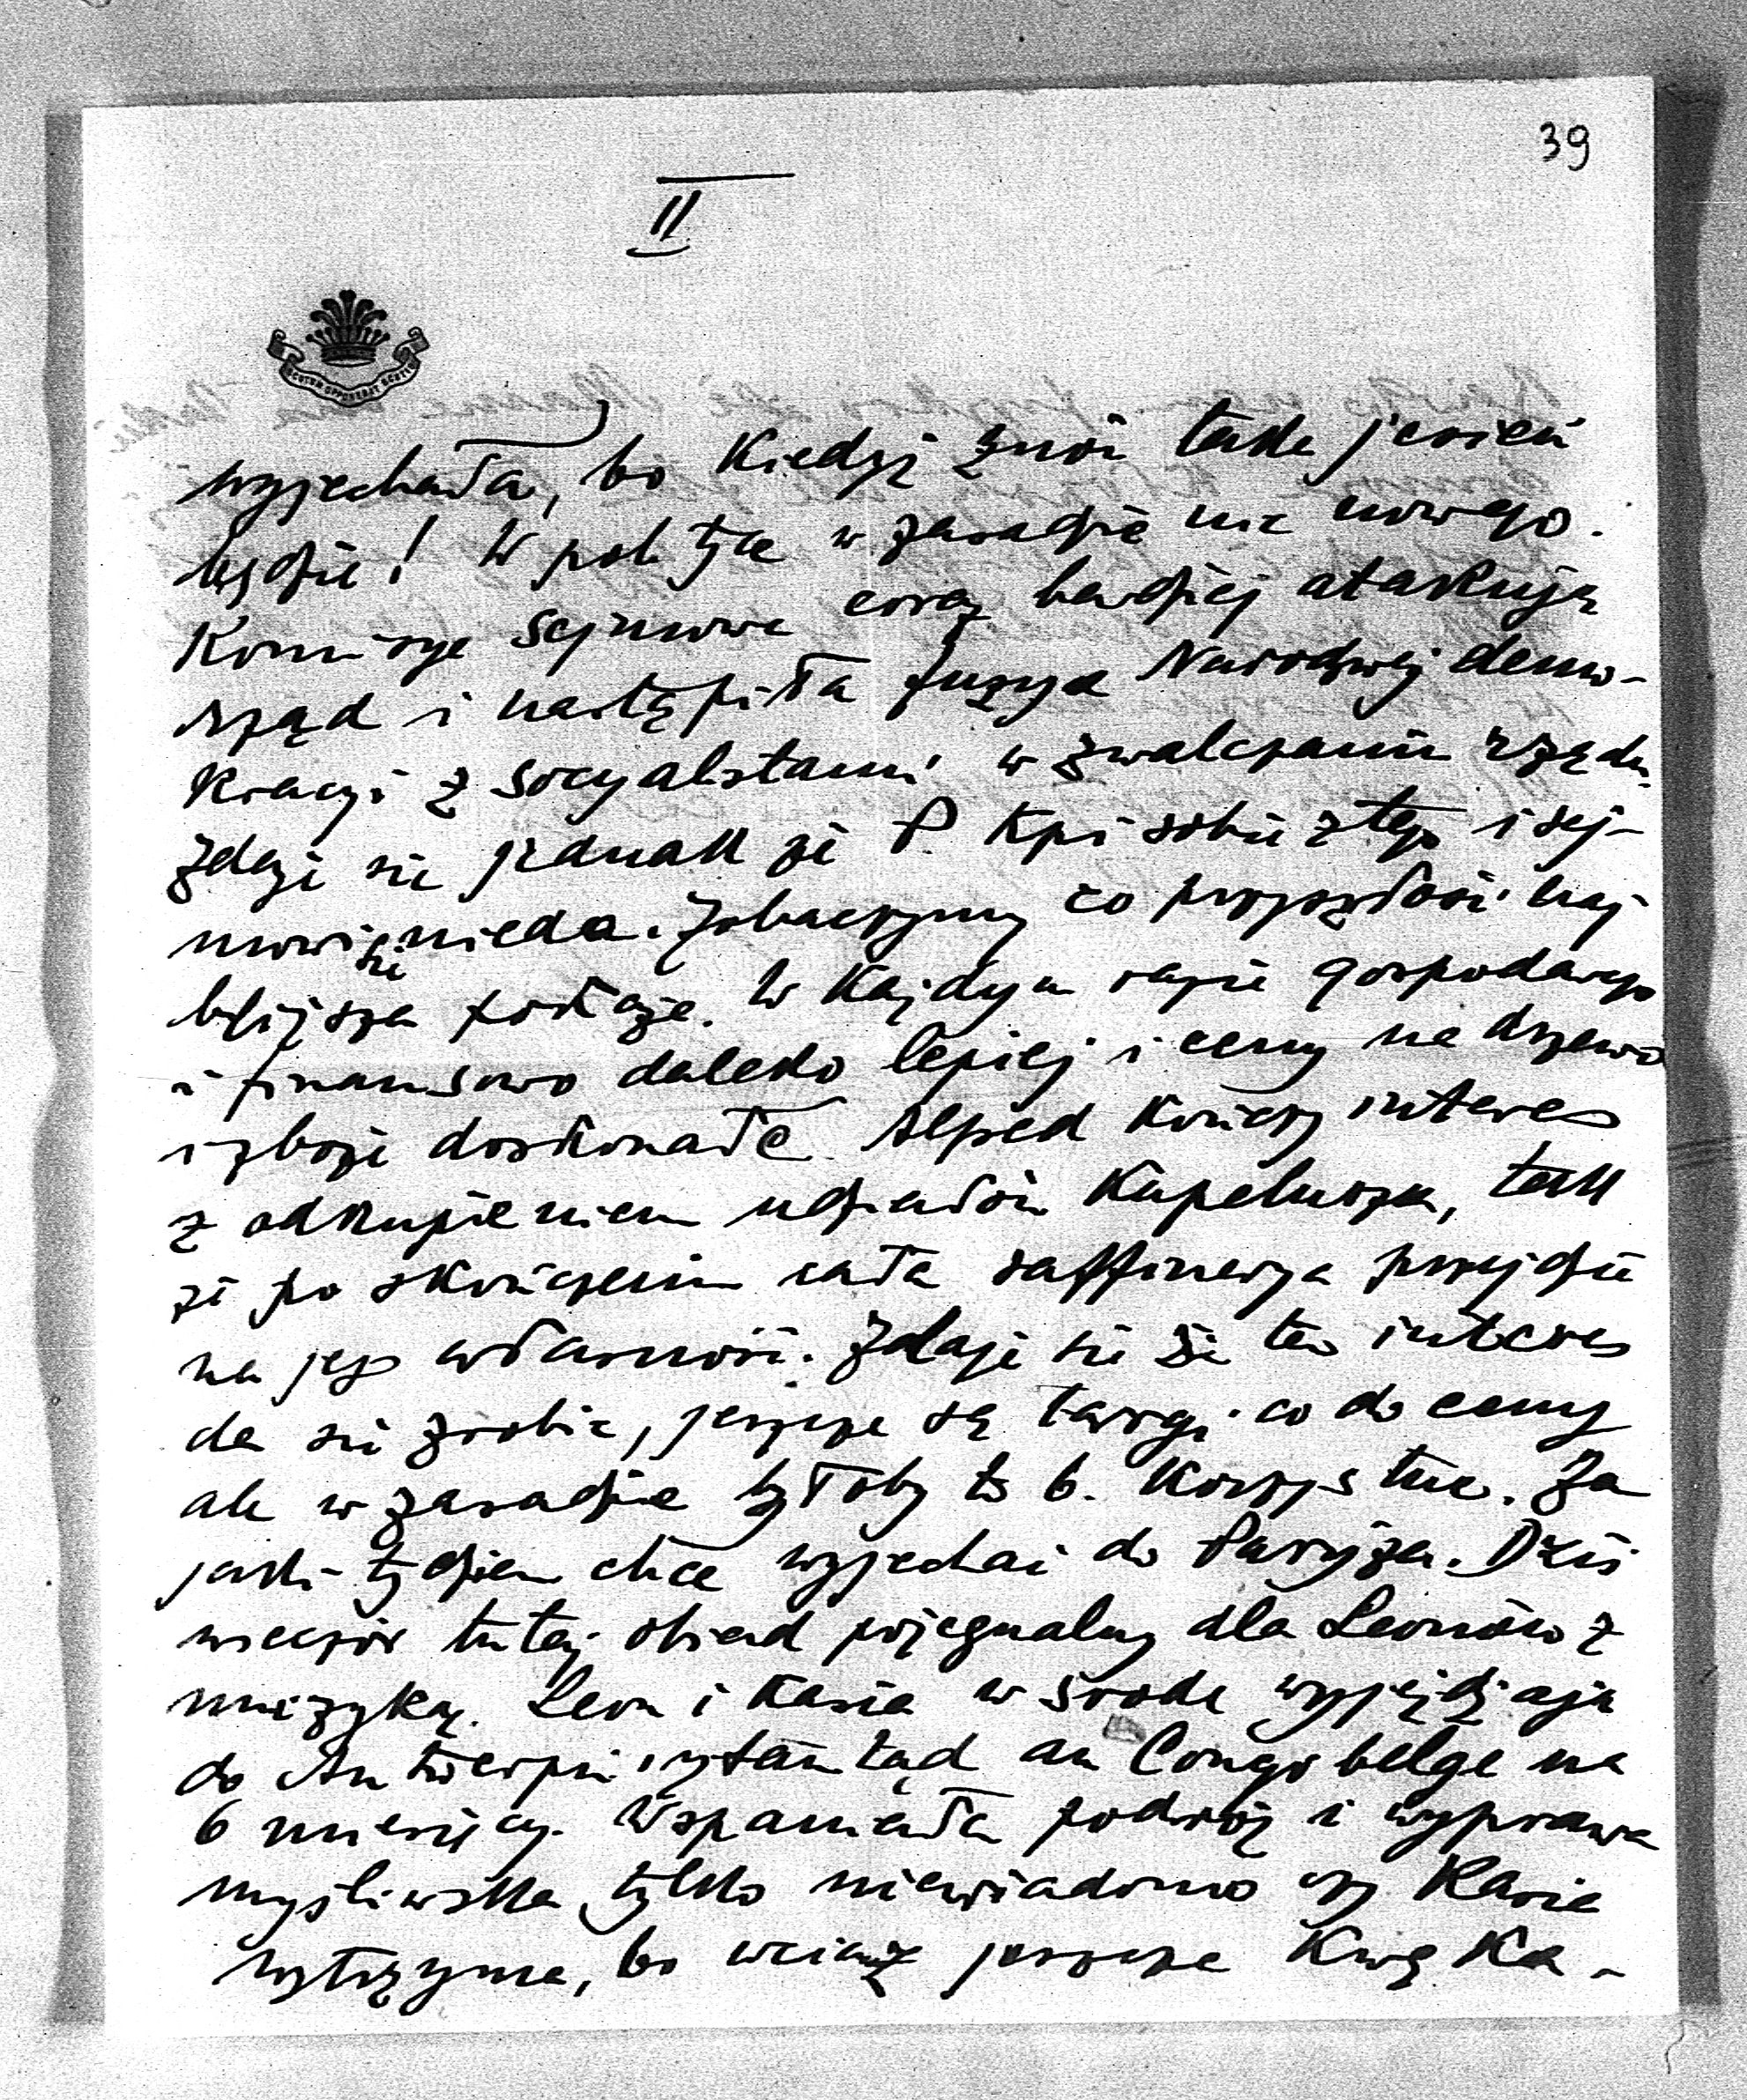 39
II
SCUTUM OPPONEBAT SCUTIS
wyjechała, bo kiedyż znów taka jesień
będzie! W polityce w zasadzie nic nowego.
Komisye sejmowe coraz bardziej atakują
rząd i nastąpiła fuzya Narodowej demo-
kracyi z socyalistami w zwalczaniu rządu.
Zdaje się jednak że P. kpi sobie z tego i sej-
mowi się nieda. Zobaczymy co przyszłość naj
bliższa pokaże. W każdym razie gospodarczo
i finansowo daleko lepiej i ceny na drzewo
i zboże doskonałe. Alfred kończy interes
z odkupieniem udziałów Kapelusza, tak
że po skończeniu cała raffinerya przejdzie
na jego własność. Zdaje się że ten interes
da się zrobić, jeszcze są targi co do ceny
ale w zasadzie byłoby to b. korzystne. Za
jaki tydzień chce wyjechać do Paryża. Dziś
wieczór tutaj obiad pożegnalny dla Leonów z
muzyką. Leon i Kasia w środę wyjeżdżają
do Antwerpii i stamtąd au Congo belge na
6 miesięcy. Wspaniała podróż i wyprawa
myśliwska, tylko niewiadomo czy Kasia
wytrzyma, bo wciąż jeszcze kwęka-